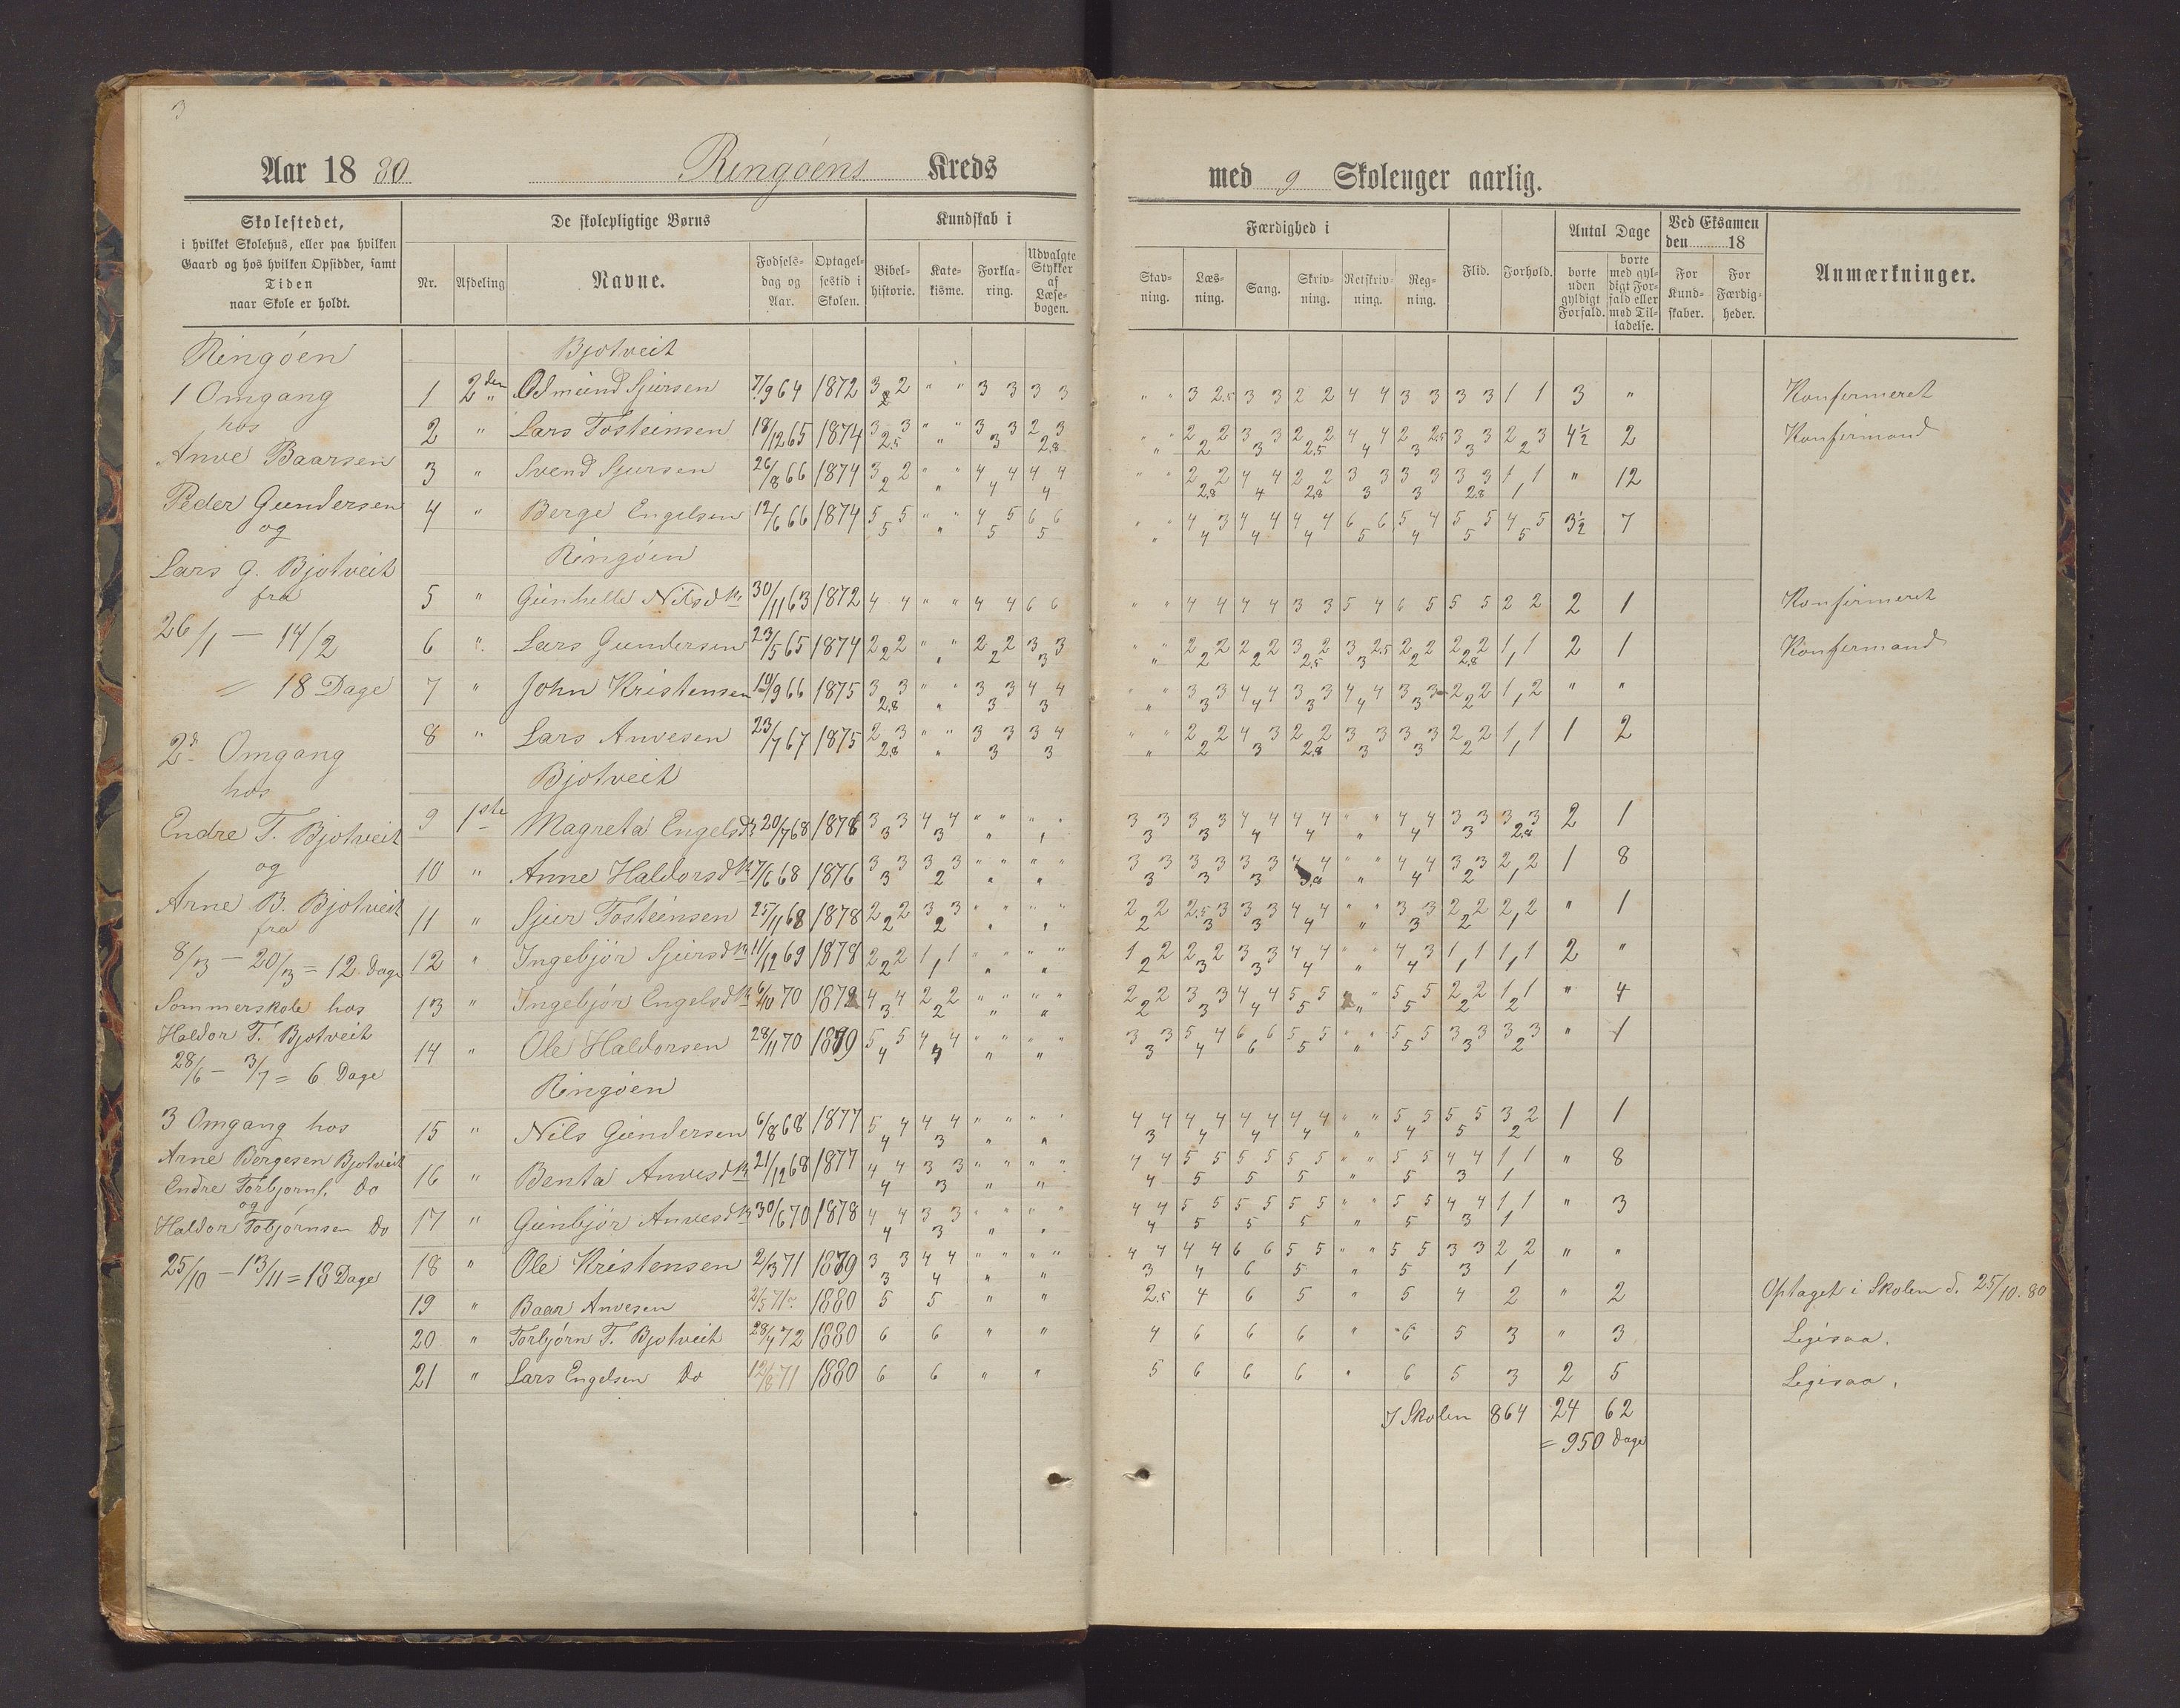 3
Aar 1880 Ringøens Kreds med 9 Skoleuger aarlig.
Skolestedet,
i hvilket Skolehus, eller paa hvilken
Gaard og hos hvilken Opsidder, samt
Tiden
naar Skole er holdt.
De skolepligtige Børns
Nr. Afdeling Navne. Fødsels-dag og Aar. Optagel-sestid i Skolen.
Kundskab i
Bibel-historie. Kate-kisme. Forkla-ring. Udvalgte Stykker af Læse-bogen.
Færdighed i
Stav-ning. Læs-ning. Sang. Skriv-ning. Retskriv-ning. Reg-ning.
Flid. Forhold.
Antal Dage
borte uden gyldigt Forfald. borte med gyl-digt For-fald eller med Til-ladelse.
Ved Eksamen den 18
For Kund-skaber. For Færdig-heder.
Anmærkninger.
Ringøen
1 Omgang
hos
Anve Baarsen
Peder Gundersen
og
Lars G. Bjotveit
fra
26/1 — 14/2
= 18 Dage
2d Omgang
hos
Endre T. Bjotveit
og
Arne B. Bjotveit
fra
8/3 — 20/3 = 12 Dage
Sommerskole hos
Haldor T. Bjotveit
28/6 — 3/7 = 6 Dage
3 Omgang hos
Arne Børgesen Bjotveit
Endre Torbjørns. Do
og
Haldor Tobjørnsen Do
25/10 — 13/11 = 18 Dage
Bjotveit
1 2den Odmund Sjursen 7/9 64 1872 3 2 2 " " 3 3 3 3 " " 3 2.5 3 3 2 2 4 4 3 3 3 3 1 1 3 " Konfirmeret
2 " Lars Tosteinsen 18/12 65 1874 3 3 2.5 " " " 3 3 3 2 3 2.8 " " " 2 2 2 3 3 3 2 2 2.5 4 4 4 2 2.5 3 3 3 3 2 3 2 4½ 2 Konfirmand
3 " Svend Sjursen 26/8 66 1874 3 2 2 " " " 4 4 4 4 4 4 " " 2 2 2.8 4 4 4 2 2 2.8 3 3 3 3 3 3 3 3 2.8 1 1 1 " 12
4 " Berge Engelsen 12/6 66 1874 5 5 5 " " " 4 5 5 6 6 5 " " " 4 3 4 4 4 4 4 4 4 6 6 5 5 4 4 5 5 5 4 5 5 3½ 7
Ringøen
5 " Gunhelle Nilsdtr 30/11 63 1872 4 4 " " 4 4 6 6 " " 4 4 4 4 3 3 5 4 6 5 5 5 2 2 2 1 Konfirmeret
6 " Lars Gundersen 23/5 65 1874 2 2 2 " " " 2 2 2 3 3 3 " " " 2 2 2 2 2 2 3 2 2.5 3 2.5 3 2 2 2 2 2 2.8 1 1 1 2 1 Konfirmand
7 " John Kristensen 19/9 66 1875 3 3 2.8 " " " 3 3 3 4 4 3 " " " 3 3 3 4 4 4 3 3 3 4 4 4 3 3 3 2 2 2 1 2 1 " "
8 " Lars Anvesen 23/7 67 1875 2 3 2.8 " " " 3 3 3 3 4 3 " " " 2 2 2 4 3 3 2 2 2.8 3 3 3 3 3 3 2 2 2 1 1 1 1 2
Bjotveit
9 1ste Magreta Engelsdtr 20/7 68 1876 3 3 3 4 4 3 " " " " " " 3 3 3 3 3 3 4 4 4 4 4 4 " " " 4 4 4 3 3 3 3 3 2.8 2 1
10 " Anne Haldorsdtr 7/6 68 1876 3 3 3 3 3 2 " " " " " " 3 3 3 3 3 3 3 3 3 4 4 " " " 4 4 4 3 3 2 2 2 1 1 8
11 " Sjur Tosteinsen 25/11 68 1878 2 2 2 3 3 2 " " " " " " 2 2 2 2.5 3 3 3 3 3 4 4 4 " " " 3 3 3 2 2 2 2 2 1 " 1
12 " Ingebjör Sjursdtr 11/12 69 1878 2 2 2 1 1 1 " " " " " " 1 2 2 2 2 3 3 3 3 4 4 4 " " " 4 3 4 1 1 1 1 1 1 2 "
13 " Ingebjör Engelsdtr 6/10 70 1878 4 4 3 2 2 2 " " " " " " 2 2 2 3 3 3 4 4 4 5 5 5 " " 5 5 5 2 2 2 1 1 2 " 4
14 " Ole Haldorsen 28/11 70 1879 5 5 4 4 4 4 " " " " " " 3 3 3 5 4 4 6 6 6 5 5 5 " " " 5 5 5 3 3 3 3 3 2 " 1
Ringøen
15 " Nils Gundersen 6/8 68 1877 5 4 4 4 4 3 " " " " " " 4 4 3 4 4 4 4 4 4 4 4 4 " " " 5 5 4 5 5 5 3 2 2 1 1
16 " Benta Anvesdtr 21/12 68 1877 4 4 4 3 3 3 " " " " " " 4 4 4 5 5 5 5 5 5 5 5 5 " " " 5 5 5 4 4 3 1 1 1 " 8
17 " Gunbjör Anvesdtr 30/6 70 1878 4 4 4 3 3 3 " " " " " " 4 4 4 5 5 5 5 5 5 5 5 5 " " " 5 5 5 4 4 3 1 1 1 " 3
18 " Ole Kristensen 2/3 71 1879 3 3 3 4 4 4 " " " " " " 4 4 3 4 4 4 6 6 6 5 5 5 " " " 5 5 5 3 3 3 2 2 1 " "
19 " Baar Anvesen 2/5 71 1880 5 5 " " 2.5 4 6 5 " 5 4 2 " 2 Optaget i Skolen d. 25/10.80
20 " Torbjörn T. Bjotveit 28/4 72 1880 6 6 " " 4 6 6 6 " 6 5 3 " 3 Ligesaa.
21 " Lars Engelsen Do 12/8 71 1880 6 6 " " 5 6 6 6 " 6 5 3 2 5 Ligesaa.
I Skolen 864 24 62
= 950 Dage